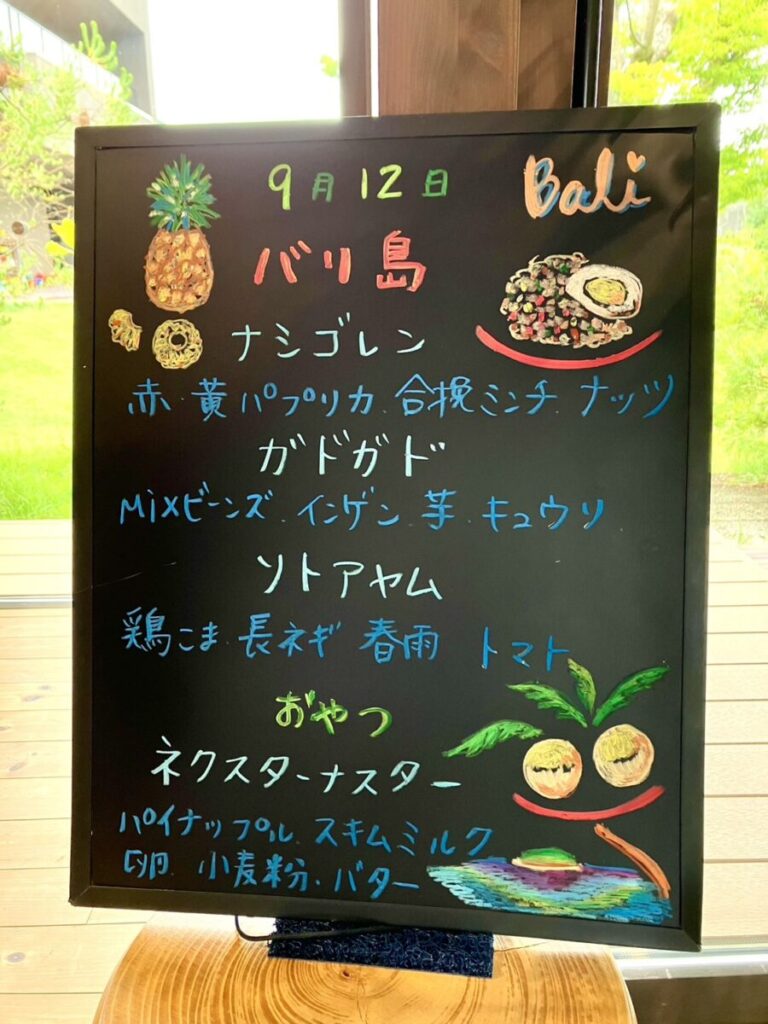 9月12日
Bali
バリ島
ナシゴレン
赤・黄パプリカ、合挽ミンチ、ナッツ
ガドガド
Mixビーンズ、インゲン、芋、キュウリ
ソトアヤム
鶏こま、長ネギ 春雨 トマト
おやつ
ネクスターナスター
パイナップル、スキムミルク
卵、小麦粉、バター